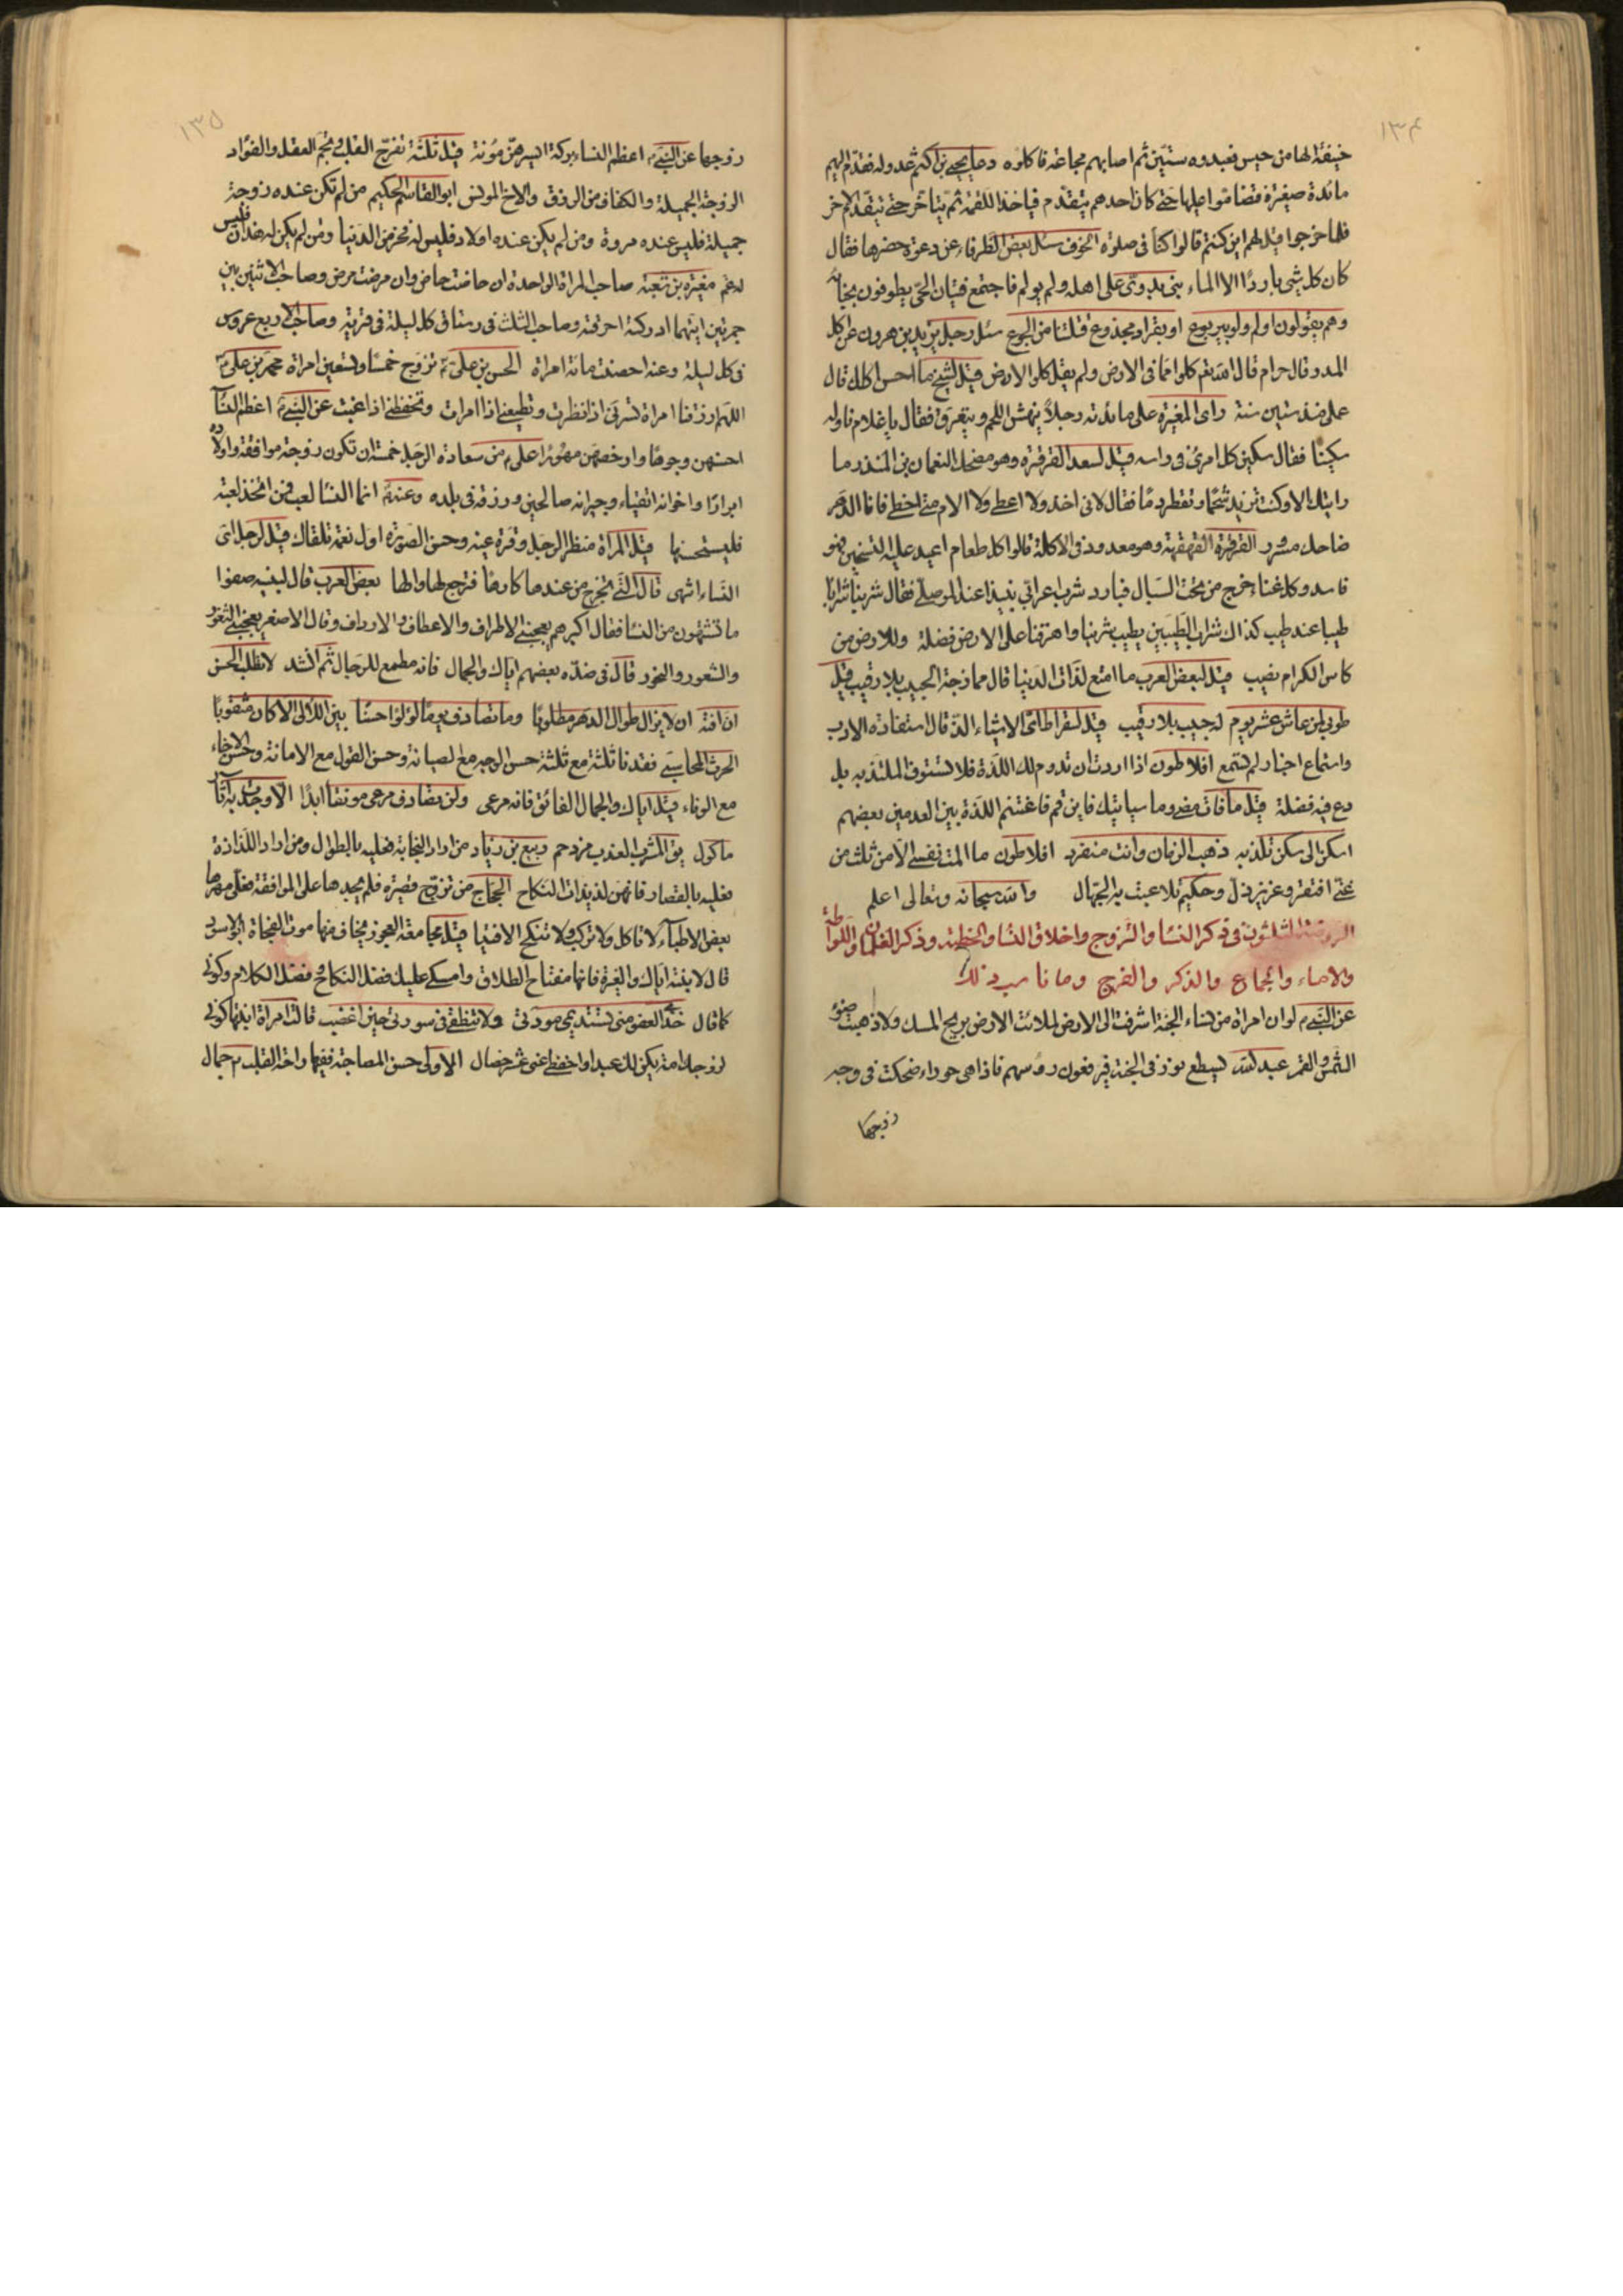 ١٣٤
حنيفة الها من حيس فعبدوه سنتين ثم اصابهم مجاعة فاكلوه دعا يحيى بن اكثم عدوله فقدم اليهم
مائدة صغيرة فتضاموا عليها حتى كان احدهم يتقدم فياخذ اللقمة ثم يتاخر حتى يتقدم الاخر
فلما خرجوا قيل لهم اين كنتم قالوا كنا فى صلوة الخوف سئل بعض الظرفاء عن دعوة حضرها فقال
كان كل شى باردًا الا الماء بنى بدوى على اهله ولم يولم فاجتمع فتيان الحى يطوفون بخبائه
وهم يقولون اولم ولو بيربوع او بقراد مجدوع قتلتنا من الجوع سئل رجل يزيد بن هرون عن اكل
المدر فقال حرام قال الله تعم كلوا مما فى الارض ولم يقل كلوا الارض قيل لشيخ ما احسن اكلك قال
عملى منذ ستين سنة راى المغيرة على مائدته رجلاً ينهش اللحم ويتعرق فقال يا غلام ناوله
سكينا فقال سكين كل امرئ فى راسه قيل لسعد القرقرة وهو مضحك النعمان بن المنذر ما
رايتك الا وكنت تزيد شحمًا وتقطر دمًا فقال لانى اخذ ولا اعطى ولا الام متى اخطى فانا الدهر
ضاحك مسرور القرقرة القهقهة وهو معدود فى الاكلة قالوا كل طعام اعيد عليه التسخين فهو
فاسد وكل غناء خرج من تحت السبال فبارد شرب اعرابى نبيذا عند الموصلى فقال شربنا شرابًا
طيبا عند طيب كذاك شراب الطيبين يطيب شربنا واهرقنا على الارض فضلة وللارض من
كاس الكرام نصيب قيل لبعض العرب ما امتع لذات الدنيا قال ممازجة الحبيب بلا رقيب قيل
طوبى لمن عاش عشر يوم له حبيب بلا رقيب قيل لسقراط اى الاشياء الذ قال استفادة الادب
واستماع اخبار لم تستمع افلاطون اذا اردت ان تدوم لك اللذة فلا تستوف الملتذ به بل
دع فيه فضلة قيل ما فات مضى وما سياتيك فاين قم فاغتنم اللذة بين العدمين بعضهم
اسكن الى سكن تلذ به ذهب الزمان وانت منفرد افلاطون ما المت نفسى الا من ثلث من
غنى افتقر وعزيز ذل وحكيم تلاعبت به الجهال والله سبحانه وتعالى اعلم
الروضة الثلثون فى ذكر النسا والتزوج واخلاق النسا والخطبة وذكر الغلمان واللواطة
والاماء والجماع والذكر والفرج وما ناسب ذلك
عن النبى م لو ان امراة من نساء الجنة اشرفت الى الارض لملائت الارض بريح المسك ولاذهبت ضوء
الشمس والقمر عبد الله يسطع نور فى الجنة فيرفعون رؤسهم فاذا هى حوراء ضحكت فى وجه
زوجها
١٣٥
زوجها عن النبى م اعظم النساء بركة ايسرهن مؤنة قيل ثلثة تفرح القلب وتجم العقل والفؤاد
الزوجة الجميلة والكفاف من الرزق والاخ المونس ابو القاسم الحكيم من لم تكن عنده زوجة
جميلة فليس عنده مروة ومن لم يكن عنده اولاد فليس له فخر من الدنيا ومن لم يكن له هذان فليس
له غم مغيرة بن شعبة صاحب المراة الواحدة ان حاضت حاض وان مرضت مرض وصاحب الاثنين بين
جمرتين ايتهما ادركته احرقته وصاحب الثلث فى رستاق كل ليلة فى قرية وصاحب الاربع عروس
فى كل ليلة وعنه احصنت مائة امراة الحسن بن على ع تزوج خمسًا وتسعين امراة محمد بن على ع
اللهم ارزقنا امراة تسرنى اذا نظرت وتطيعنى اذا امرت وتحفظنى اذا غبت عن النبى م اعظم النسآ
احسنهن وجوهًا وارخصهن مهورًا على م من سعادة الرجل خمسة ان تكون زوجة موافقة واولاده
ابرارًا واخوانه اتقياء وجيرانه صالحين ورزقه فى بلده وعنه م انما النسا لعب فمن اتخذ لعبة
فليستحسنها قيل المراة منظر الرجل وقرة عينه وحسن الصورة اول نعمة تلقاك قيل لرجل اى
النساء اشهى قال التى تخرج من عندها كارهًا فترجع لها والها بعض العرب قال لبنيه صفوا
ما تشتهون من النسا فقال اكبرهم يعجبنى الاطراف والاعطاف والارداف وقال الاصغر يعجبنى الثغور
والشعور والنحور قال فى ضده بعضهم اياك والجمال فانه مطمع للرجال ثم انشد لا تطلب الحسن
ان افته ان لا يزال طوال الدهر مطلوبًا وما تصادف يومًا لؤلؤا حسنًا بين اللآلى الا كان مثقوبًا
الحرث المحاسبى فقدنا ثلثة مع ثلثة حسن الوجه مع الصيانة وحسن القول مع الامانة وحسن الاخاء
مع الوفاء قيل اياك والجمال الفائق فانه مرعى ولن تصادف مرعى مونقا ابدًا الا وجدت به آثار
ماكول يق المشرب العذب مزدحم ربيع بن زياد من اراد النجابة فعليه بالطوال ومن اراد اللذاذة
فعليه بالقصار فانهن لذيذات النكاح الحجاج من تزوج قصيرة فلم يجدها على الموافقة فعلى مهرها
بعض الاطباء لا تاكل ولا تركب ولا تنكح الا فتيا قيل مجامعة العجوز يخاف منها موت الفجاة ابو الاسود
قال لابنته اياك والغيرة فانها مفتاح الطلاق وامسكى عليك فضل النكاح وفضل الكلام وكونى
كما قال خذى العفو منى تستديمى مودتى ولا تنطقى فى سورتى حين اغضب قالت امراة ابنتها كونى
لزوجك امة يكن لك عبدا واحفظى عنى عشر خصال الاولى حسن المصاحبة ففيها راحة القلب م جمال